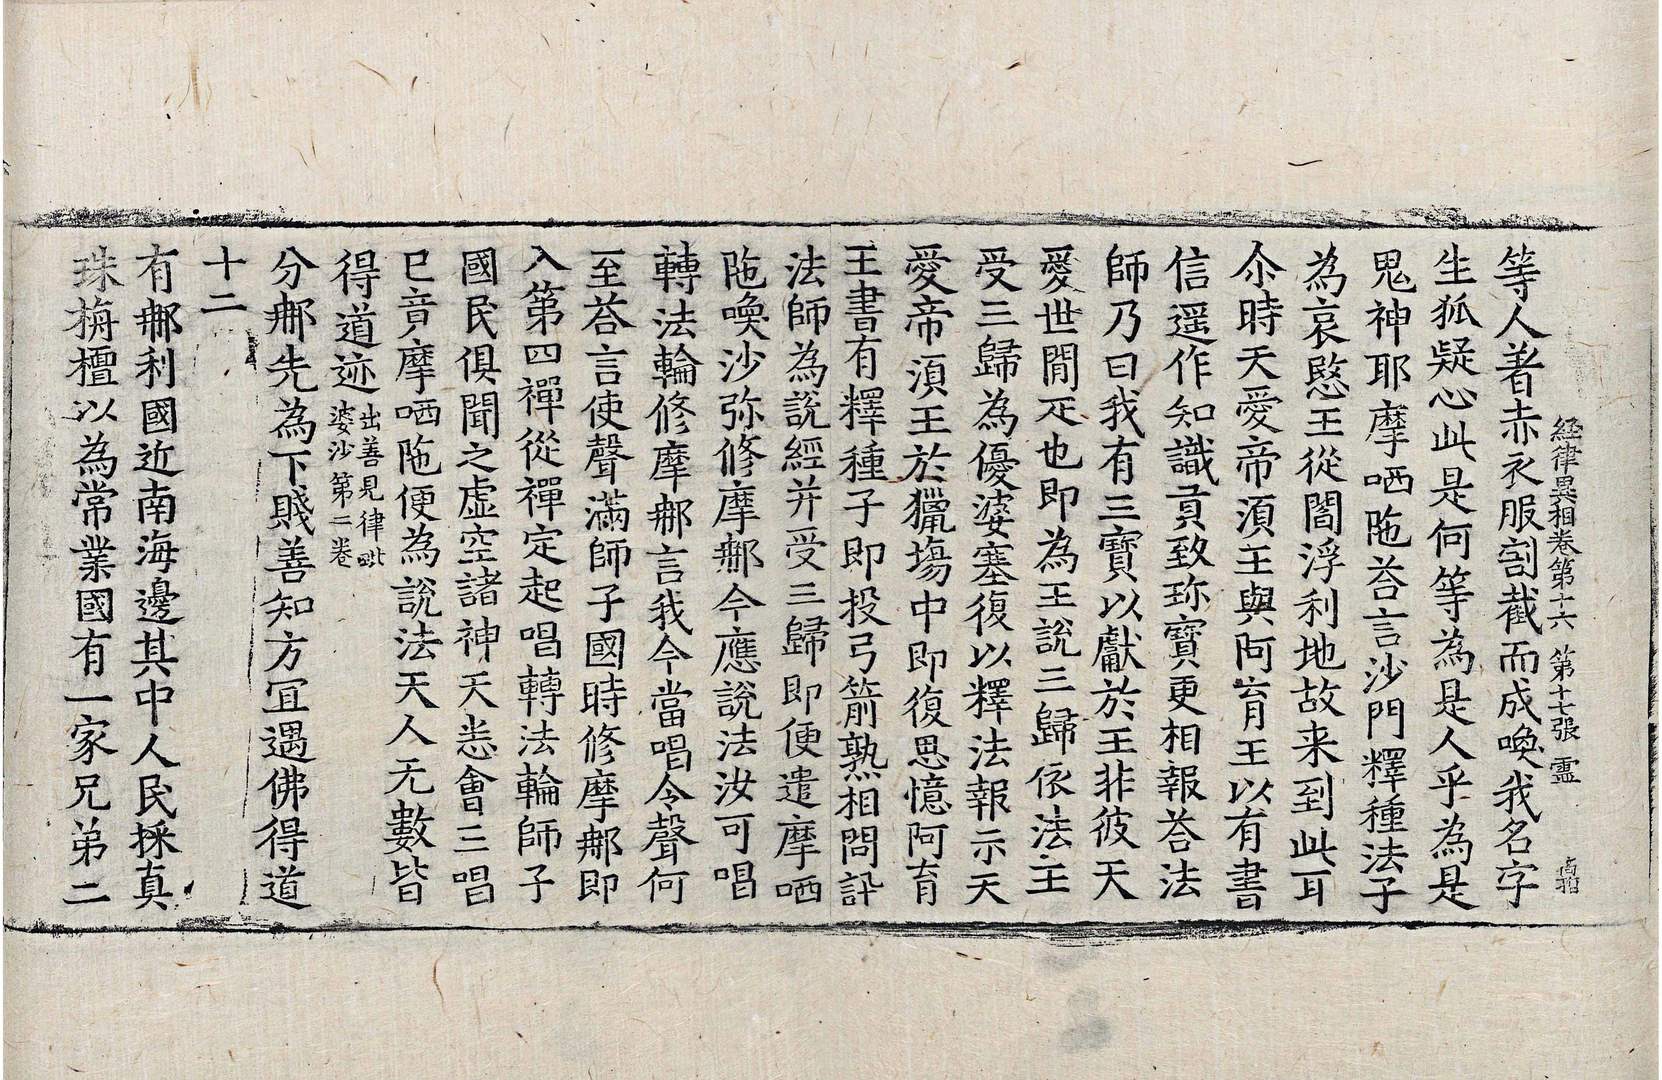 経律異相卷第十六　第十七張　靈
等人著赤衣服割截而成喚我名字
生狐疑心此是何等為是人乎為是
鬼神耶摩哂陁荅言沙門釋種法子
為哀愍王從閻浮利地故来到此耳
尒時天愛帝湏王與阿育王以有書
信遥作知識貢致珎寳更相報荅法
師乃曰我有三寳以獻於王非彼天
愛世間疋也即為王說三歸依法主
受三歸為優婆塞復以釋法報示天
愛帝湏王於獵塲中即復思憶阿育
王書有釋種子即投弓箭熟相問訊
法師為說經并受三歸即便遣摩哂
陁喚沙弥修摩㖠今應說法汝可唱
轉法輪修摩㖠言我今當唱令聲何
至荅言使聲滿師子國時修摩㖠即
入第四禪從禪定起唱轉法輪師子
國民俱聞之虚空諸神天悉會三唱
巳竟摩哂陁便為說法天人无數皆
得道迹出善見律毗
婆沙第二卷
分㖠先為下賤善知方冝遇佛得道
十二
有㖠利國近南海邊其中人民採真
珠栴檀以為常業國有一家兄弟二